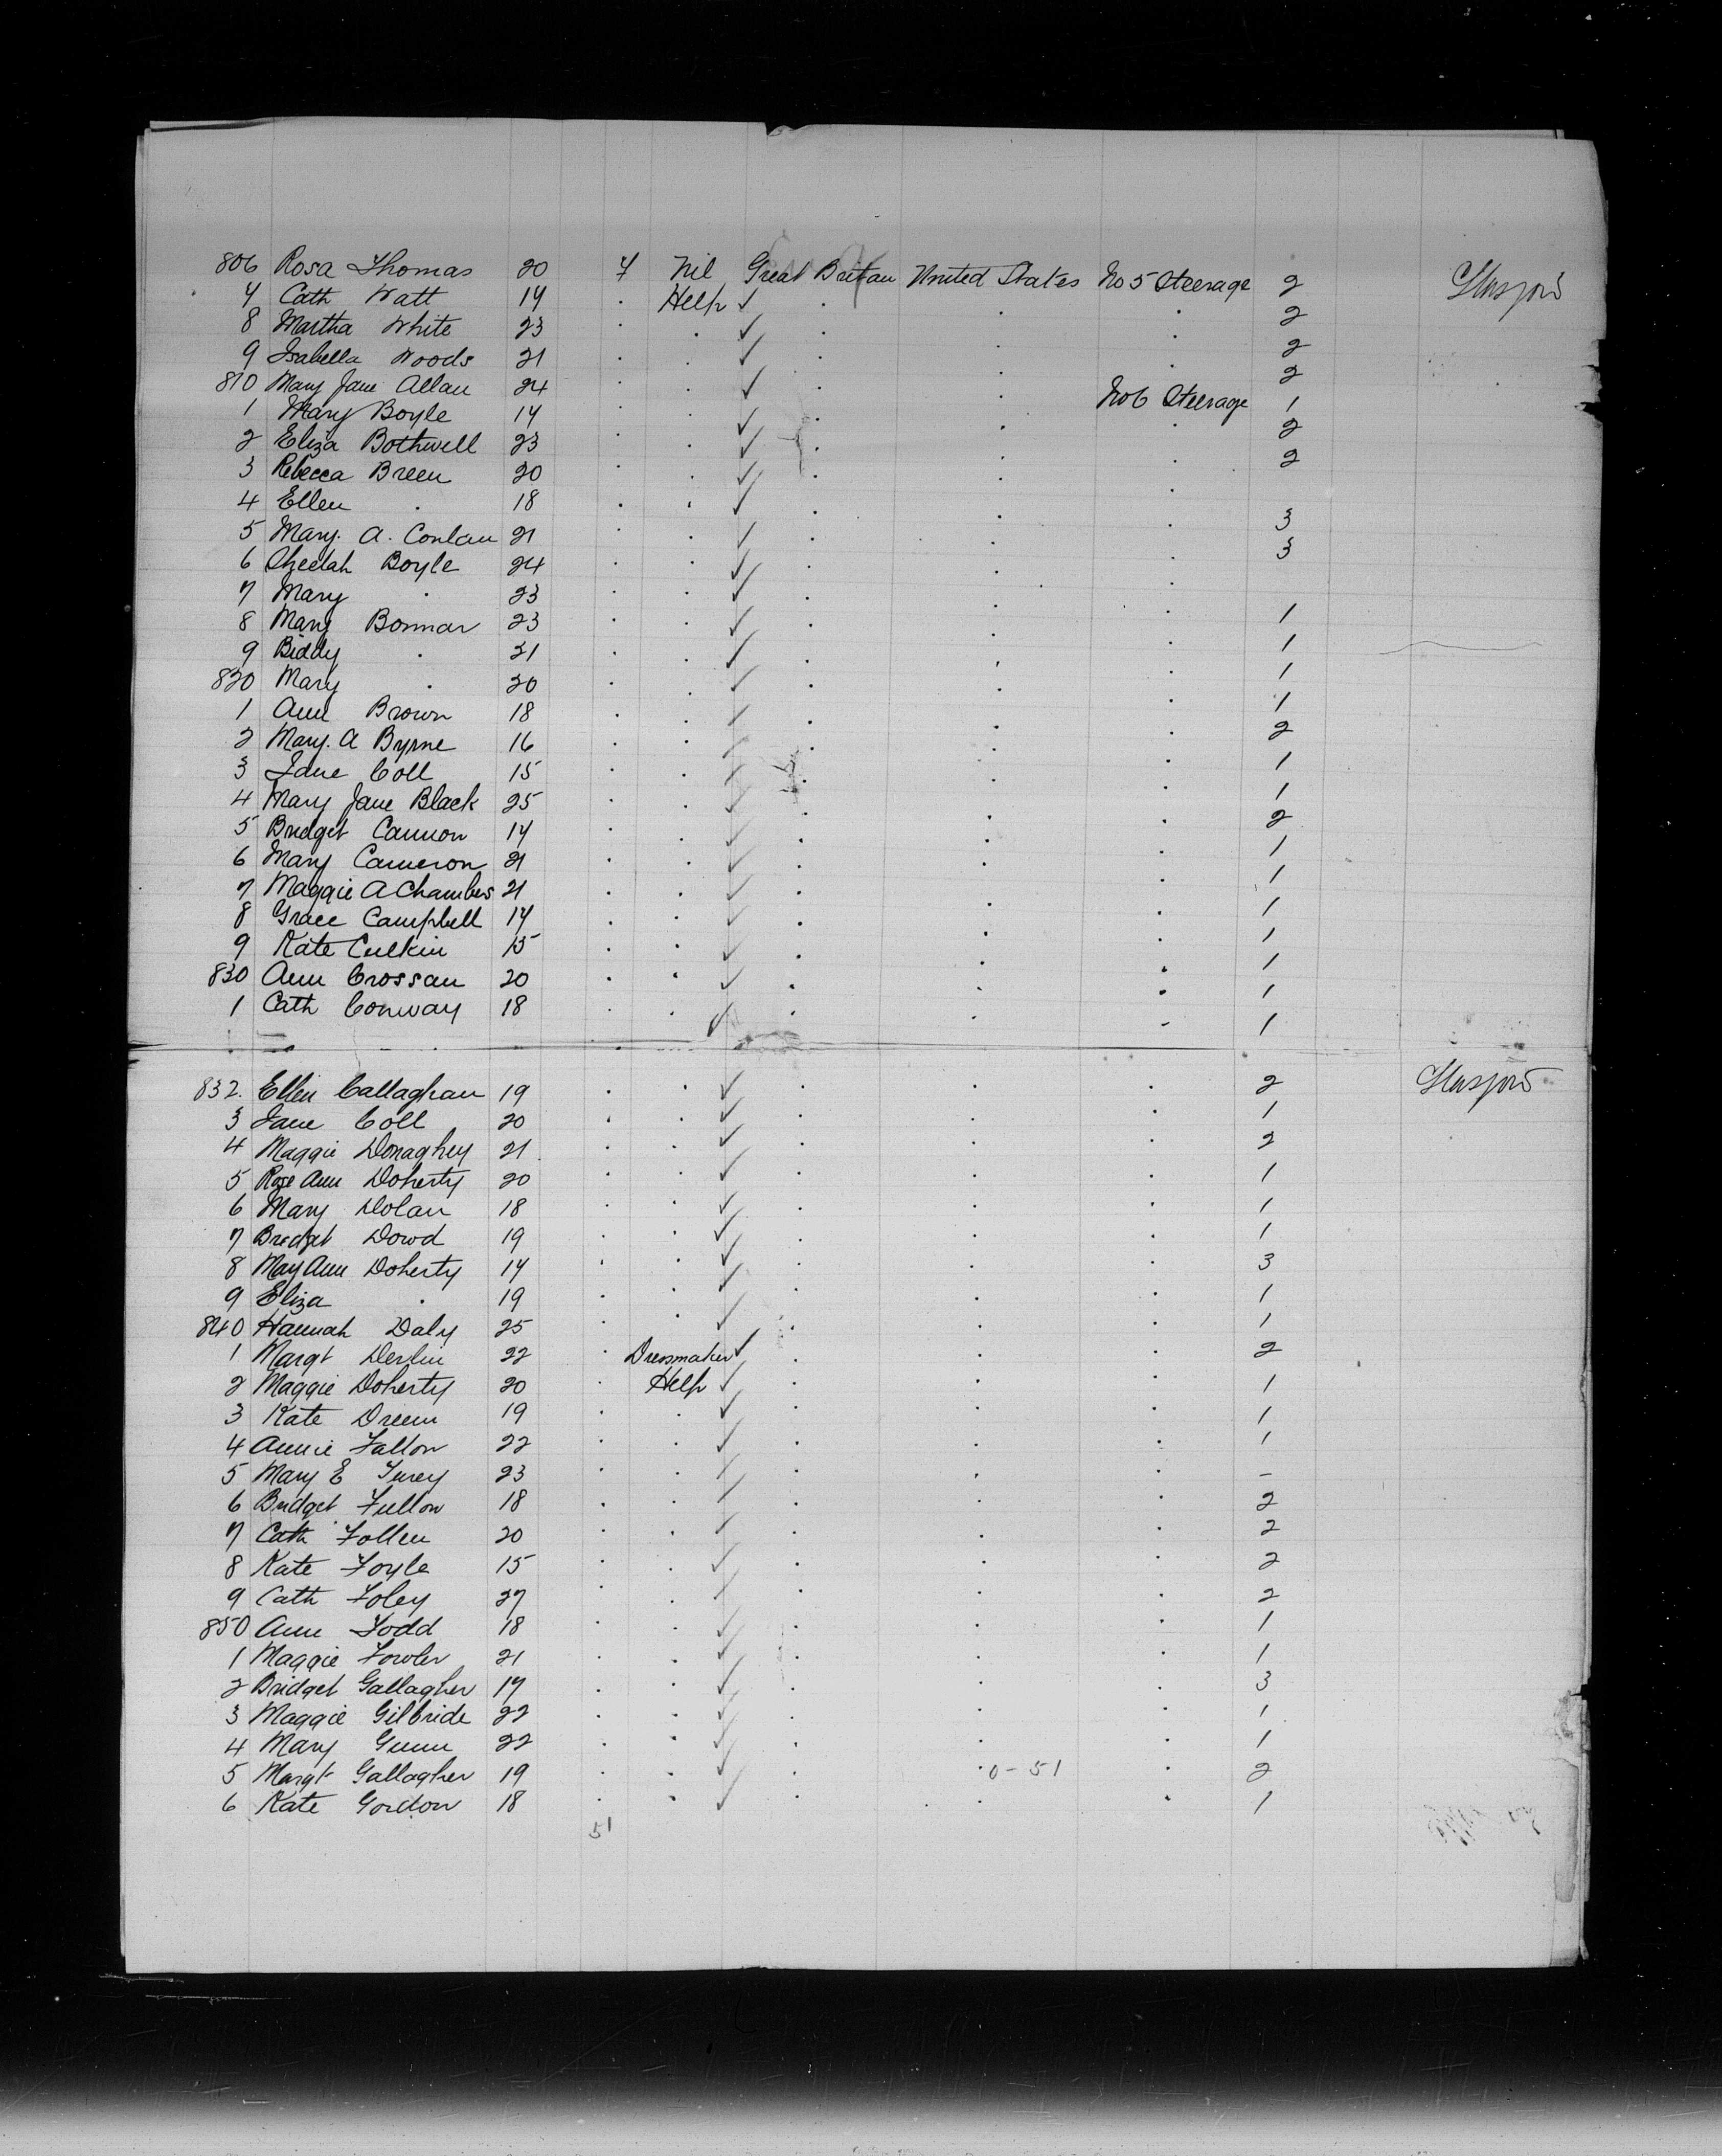 806 Rosa Thomas 20 F Nil Great Britan United States No 5 Steerage 2 Glasgow
7 Cath Watt 17 . Help ✓ . . . 2
8 Martha White 23 . . ✓ . . . 2
9 Isabella Woods 21 . . ✓ . . . 2
810 Mary Jane Allan 24 . . ✓ . . No 6 Steerage 1
1 Mary Boyle 17 . . ✓ . . . 2
2 Eliza Bothwell 23 . . ✓ . . . 2
3 Rebecca Breen 20 . . ✓ . . .
4 Ellen . 18 . . ✓ . . . 3
5 Mary. A. Conlan 21 . . ✓ . . . 3
6 Boyle 24 . . ✓ . . .
7 Mary . 23 . . ✓ . . . 1
8 Mary Bonnar 23 . . ✓ . . . 1
9 Biddy . 21 . . ✓ . . . 1
820 Mary . 20 . . ✓ . . . 1
1 Ann Brown 18 . . ✓ . . . 2
2 Mary. A Byrne 16 . . ✓ . . . 1
3 Jane Coll 15 . . ✓ . . . 1
4 Mary Jane Black 25 . . ✓ . . . 2
5 Bridget Cannon 17 . . ✓ . . . 1
6 Mary Cameron 21 . . ✓ . . . 1
7 Maggie A Chambers 21 . . ✓ . . . 1
8 Grace Campbell 17 . . ✓ . . . 1
9 Kate Culkin 15 . . ✓ . . . 1
830 Ann Crossan 20 . . ✓ . . . 1
1 Cath Conway 18 . . ✓ . . - 1
832. Ellen Callaghan 19 . . ✓ . . . 2 Glasgow
3 Jane Coll 20 . . ✓ . . . 1
4 Maggie Donaghey 21 . . ✓ . . . 2
5 Rose Ann Doherty 20 . . ✓ . . . 1
6 Mary Dolan 18 . . ✓ . . . 1
7 Bridget Dowd 19 . . ✓ . . . 1
8 Mary Ann Doherty 17 . . ✓ . . . 3
9 Eliza . 19 . . ✓ . . . 1
840 Hannah Daly 25 . . ✓ . . . 1
1 Margt Devlin 22 . Dressmaker ✓ . . . 2
2 Maggie Doherty 20 . Help ✓ . . . 1
3 Kate 19 . . ✓ . . . 1
4 Annie Fallon 22 . . ✓ . . . 1
5 Mary E Furey 23 . . ✓ . . . -
6 Bridget Fullon 18 . . ✓ . . . 2
7 Cath Follen 20 . . ✓ . . . 2
8 Kate Foyle 15 . . ✓ . . . 2
9 Cath Foley 27 . . ✓ . . . 2
850 Ann Fodd 18 . . ✓ . . . 1
1 Maggie Fowler 21 . . ✓ . . . 1
2 Bridget Gallagher 17 . . ✓ . . . 3
3 Maggie Gilbride 22 . . ✓ . . . 1
4 Mary Gunn 22 . . ✓ . . . 1
5 Margt Gallagher 19 . . ✓ . . 0-51 . 2
6 Kate Gordon 18 . . ✓ . . . 1
51